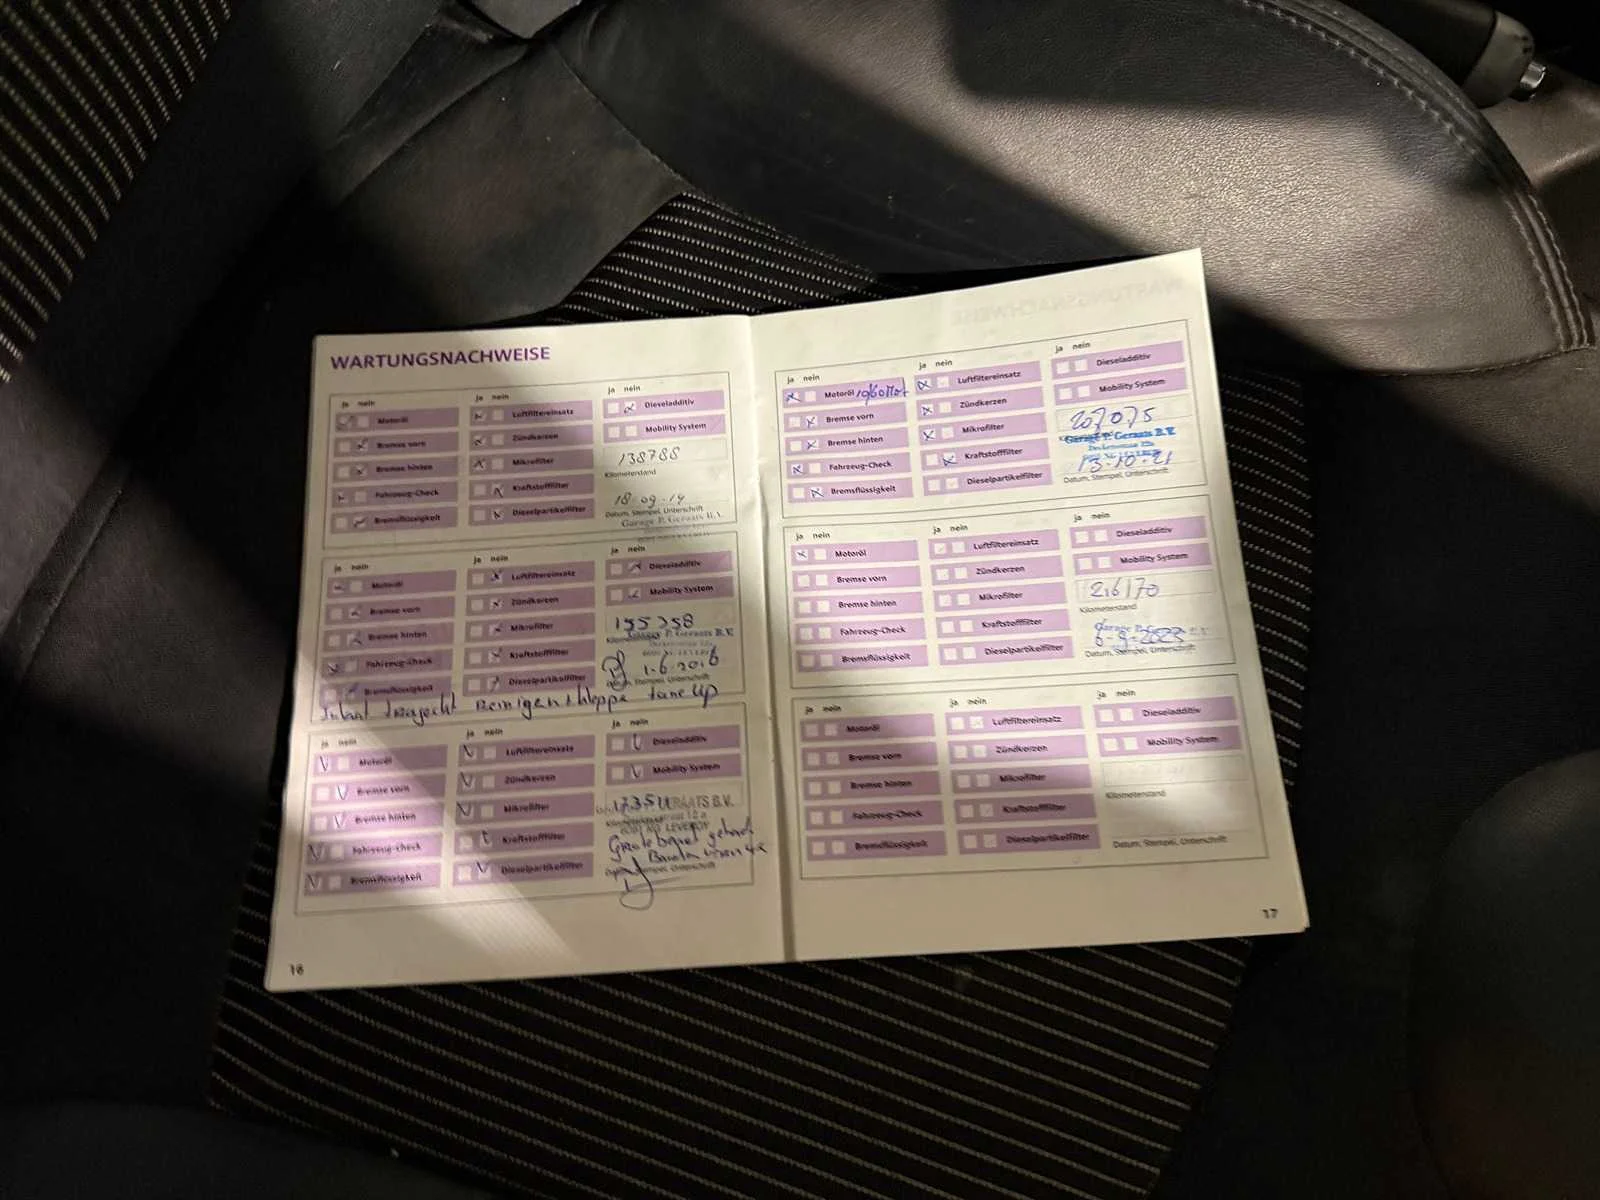 WARTUNGSNACHWEISE
ja nein
Motoröl
Bremse vorn
Bremse hinten
Fahrzeug-Check
Bremsflüssigkeit
ja nein
Luftfiltereinsatz
Zündkerzen
Mikrofilter
Kraftstofffilter
Dieselpartikelfilter
ja nein
Dieseladditiv
Mobility System
138788
Kilometerstand
18-09-14
Datum, Stempel, Unterschrift
Garage P. Geraats B.V.
ja nein
Motoröl
Bremse vorn
Bremse hinten
Fahrzeug-Check
Bremsflüssigkeit
ja nein
Luftfiltereinsatz
Zündkerzen
Mikrofilter
Kraftstofffilter
Dieselpartikelfilter
ja nein
Dieseladditiv
Mobility System
155758
Garage P. Geraats B.V.
1-6-2016
Datum, Stempel, Unterschrift
Reinigen tune up
ja nein
Motoröl
Bremse vorn
Bremse hinten
Fahrzeug-Check
Bremsflüssigkeit
ja nein
Luftfiltereinsatz
Zündkerzen
Mikrofilter
Kraftstofffilter
Dieselpartikelfilter
ja nein
Dieseladditiv
Mobility System
ERAATS B.V.
LEVEROY
Grote beurt gehad
Unterschrift
16
ja nein
Motoröl
Bremse vorn
Bremse hinten
Fahrzeug-Check
Bremsflüssigkeit
ja nein
Luftfiltereinsatz
Zündkerzen
Mikrofilter
Kraftstofffilter
Dieselpartikelfilter
ja nein
Dieseladditiv
Mobility System
207075
Garage P. Geraats B.V.
13-10-21
Datum, Stempel, Unterschrift
ja nein
Motoröl
Bremse vorn
Bremse hinten
Fahrzeug-Check
Bremsflüssigkeit
ja nein
Luftfiltereinsatz
Zündkerzen
Mikrofilter
Kraftstofffilter
Dieselpartikelfilter
ja nein
Dieseladditiv
Mobility System
216170
Kilometerstand
6-9-2023
Datum, Stempel, Unterschrift
ja nein
Motoröl
Bremse vorn
Bremse hinten
Fahrzeug-Check
Bremsflüssigkeit
ja nein
Luftfiltereinsatz
Zündkerzen
Mikrofilter
Kraftstofffilter
Dieselpartikelfilter
ja nein
Dieseladditiv
Mobility System
Kilometerstand
Datum, Stempel, Unterschrift
17